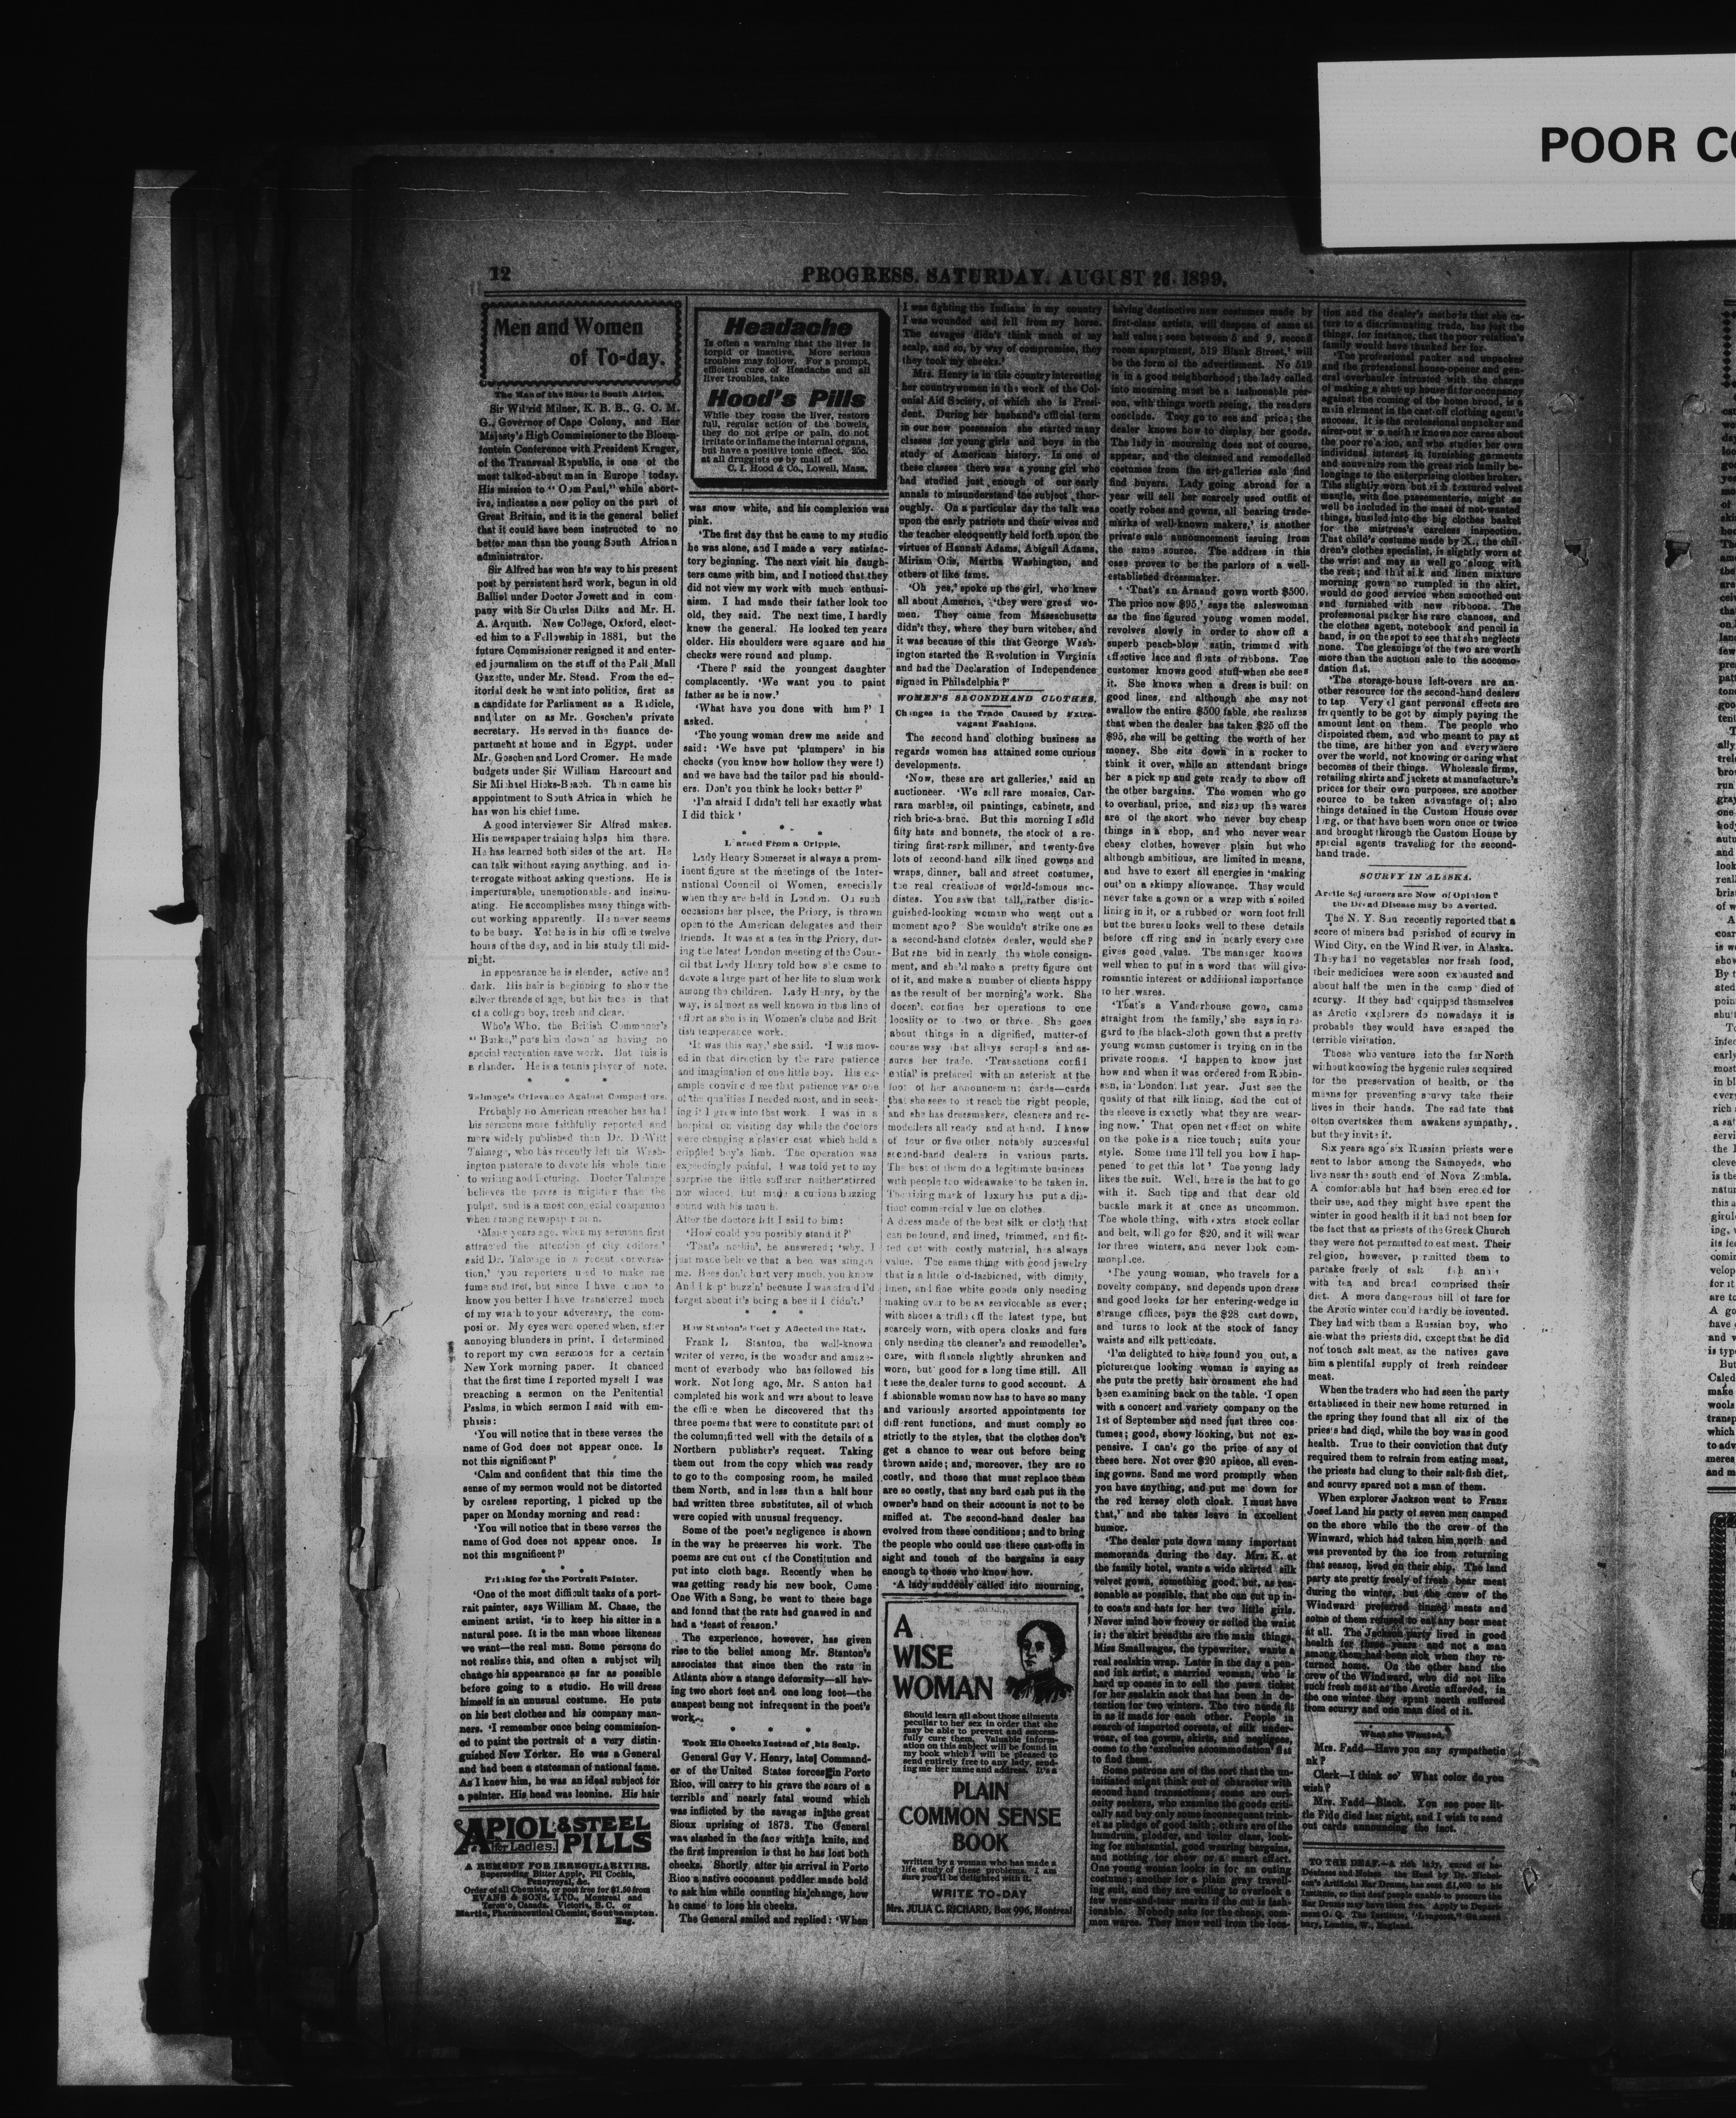 POOR CO
12
PROGRESS, SATURDAY, AUGUST 26, 1899.
Men and Women
of To-day.
The Man of the Hour in South Africa.
Sir Wilfrid Milner, K. B. B., G. C. M.
G., Governor of Cape Colony, and Her
Majesty's High Commissioner to the Bloem-
fontein Conference with President Kruger,
of the Transvaal Republic, is one of the
most talked-about man in Europe today.
His mission to "Oom Paul," while abort-
ive, indicates a new policy on the part of
Great Britain, and it is the general belief
that it could have been instructed to no
better man than the young South African
administrator.
Sir Alfred has won his way to his present
post by persistent hard work, begun in old
Balliol under Doctor Jowett and in com-
pany with Sir Charles Dilks and Mr. H.
A. Arquith. New College, Oxford, elect-
ed him to a Fellowship in 1881, but the
future Commissioner resigned it and enter-
ed journalism on the staff of the Pall Mall
Gazette, under Mr. Stead. From the ed-
itorial desk he went into politics, first as
a candidate for Parliament as a Radicle,
and later on as Mr. Goschen's private
secretary. He served in the finance de-
partment at home and in Egypt, under
Mr. Goschen and Lord Cromer. He made
budgets under Sir William Harcourt and
Sir Michael Hicks-Beach. Then came his
appointment to South Africa in which he
has won his chief fame.
A good interviewer Sir Alfred makes.
His newspaper training helps him there.
He has learned both sides of the art. He
can talk without saying anything, and in-
terrogate without asking questions. He is
imperturable, unemotionable and insinu-
ating. He accomplishes many things with-
out working apparently. He never seems
to be busy. Yet he is in his office twelve
hours of the day, and in his study till mid-
night.
In appearance he is slender, active and
dark. His hair is beginning to show the
silver threads of age, but his face is that
of a college boy, fresh and clear.
Who's Who, the British Commoner's
"Burke," puts him down as having no
special recreation save work. But this is
a slander. He is a tennis player of note.
* * *
Talmage's Grievance Against Compositors.
Probably no American preacher has had
his sermons more faithfully reported and
more widely published than Dr. DeWitt
Talmage, who has recently left his Wash-
ington pastorate to devote his whole time
to writing and lecturing. Doctor Talmage
believes the press is mightier than the
pulpit, and is a most congenial companion
when among newspaper men.
'Many years ago, when my sermons first
attracted the attention of city editors,'
said Dr. Talmage in a recent conversa-
tion,' 'you reporters used to make me
fume and fret, but since I have come to
know you better I have transferred much
of my wrath to your adversary, the com-
positor. My eyes were opened when, after
annoying blunders in print, I determined
to report my own sermons for a certain
New York morning paper. It chanced
that the first time I reported myself I was
preaching a sermon on the Penitential
Psalms, in which sermon I said with em-
phasis:
'You will notice that in these verses the
name of God does not appear once. Is
not this significant?'
'Calm and confident that this time the
sense of my sermon would not be distorted
by careless reporting, I picked up the
paper on Monday morning and read:
'You will notice that in these verses the
name of God does not appear once. Is
not this magnificent?'
* * *
Prinking for the Portrait Painter.
'One of the most difficult tasks of a port-
rait painter, says William M. Chase, the
eminent artist, 'is to keep his sitter in a
natural pose. It is the man whose likeness
we want—the real man. Some persons do
not realize this, and often a subject will
change his appearance as far as possible
before going to a studio. He will dress
himself in an unusual costume. He puts
on his best clothes and his company man-
ners. 'I remember once being commission-
ed to paint the portrait of a very distin-
guished New Yorker. He was a General
and had been a statesman of national fame.
As I knew him, he was an ideal subject for
a painter. His head was leonine. His hair
APIOL & STEEL
for Ladies. PILLS
A REMEDY FOR IRREGULARITIES.
Superseding Bitter Apple, Pil Cochia,
Pennyroyal, &c.
Order of all Chemists, or post free for $1.50 from
EVANS & SONS, LTD., Montreal and
Toronto, Canada. Victoria, B. C. or
Martin, Pharmaceutical Chemist, Southampton.
Eng.
Headache
Is often a warning that the liver is
torpid or inactive. More serious
troubles may follow. For a prompt,
efficient cure of Headache and all
liver troubles, take
Hood's Pills
While they rouse the liver, restore
full, regular action of the bowels,
they do not gripe or pain, do not
irritate or inflame the internal organs,
but have a positive tonic effect. 25c.
at all druggists or by mail of
C. I. Hood & Co., Lowell, Mass.
was snow white, and his complexion was
pink.
'The first day that he came to my studio
he was alone, and I made a very satisfac-
tory beginning. The next visit his daugh-
ters came with him, and I noticed that they
did not view my work with much enthusi-
aism. I had made their father look too
old, they said. The next time, I hardly
knew the general. He looked ten years
older. His shoulders were square and his
checks were round and plump.
'There!' said the youngest daughter
complacently. 'We want you to paint
father as he is now.'
'What have you done with him?' I
asked.
'The young woman drew me aside and
said: 'We have put 'plumpers' in his
checks (you know how hollow they were!)
and we have had the tailor pad his should-
ers. Don't you think he looks better?'
'I'm afraid I didn't tell her exactly what
I did thick'
* * *
Learned From a Cripple.
Lady Henry Somerset is always a prom-
inent figure at the meetings of the Inter-
national Council of Women, especially
when they are held in London. On such
occasions her place, the Priory, is thrown
open to the American delegates and their
friends. It was at a tea in the Priory, dur-
ing the latest London meeting of the Coun-
cil that Lady Henry told how she came to
devote a large part of her life to slum work
among the children. Lady Henry, by the
way, is almost as well known in this line of
effort as she is in Women's clubs and Brit
tish temperance work.
'It was this way,' she said. 'I was mov-
ed in that direction by the rare patience
and imagination of one little boy. His ex-
ample convinced me that patience was one
of the qualities I needed most, and in seek-
ing it I grew into that work. I was in a
hospital on visiting day while the doctors
were changing a plaster cast which held a
crippled boy's limb. The operation was
exceedingly painful, I was told yet to my
surprise the little sufferer neither stirred
nor winced, but made a curious buzzing
sound with his mouth.
After the doctors left I said to him:
'How could you possibly stand it?'
'That's nothin', he answered; 'why, I
just made believe that a bee was stingin'
me. Bees don't hurt very much, you know
And I kept buzzin' because I was afraid I'd
forget about it's being a bee if I didn't.'
* * *
How Stanton's Poetry Affected the Rats.
Frank L Stanton, the well-known
writer of verse, is the wonder and amaze-
ment of everbody who has followed his
work. Not long ago, Mr. Stanton had
completed his work and wrs about to leave
the office when he discovered that the
three poems that were to constitute part of
the column, fitted well with the details of a
Northern publisher's request. Taking
them out from the copy which was ready
to go to the composing room, he mailed
them North, and in less than a half hour
had written three substitutes, all of which
were copied with unusual frequency.
Some of the poet's negligence is shown
in the way he preserves his work. The
poems are cut out of the Constitution and
put into cloth bags. Recently when he
was getting ready his new book, Come
One With a Song, he went to these bags
and found that the rats had gnawed in and
had a 'feast of reason.'
The experience, however, has given
rise to the belief among Mr. Stanton's
associates that since then the rats in
Atlanta show a stange deformity—all hav-
ing two short feet and one long foot—the
anapest being not infrequent in the poet's
work.
* * *
Took His Cheeks Instead of his Scalp.
General Guy V. Henry, late Command-
er of the United States forces in Porto
Rico, will carry to his grave the scars of a
terrible and nearly fatal wound which
was inflicted by the savages in the great
Sioux uprising of 1873. The General
was slashed in the face with a knife, and
the first impression is that he has lost both
cheeks. Shortly after his arrival in Porto
Rico a native cocoanut peddler made bold
to ask him while counting his change, how
he came to lose his cheeks.
The General smiled and replied: 'When
I was fighting the Indians in my country
I was wounded and fell from my horse.
The savages didn't think much of my
scalp, and so, by way of compromise, they
they took my cheeks.'
Mrs. Henry is in this country interesting
her countrywomen in the work of the Col-
onial Aid Society, of which she is Presi-
dent. During her husband's official term
in our new possession she started many
classes for young girls and boys in the
study of American history. In one of
these classes there was a young girl who
had studied just enough of our early
annals to misunderstand the subject thor-
oughly. On a particular day the talk was
upon the early patriots and their wives and
the teacher eloquently held forth upon the
virtues of Hannah Adams, Abigail Adams,
Miriam Otis, Martha Washington, and
others of like fame.
'Oh yes,' spoke up the girl, who knew
all about America, 'they were great wo-
men. They came from Massachusetts
didn't they, where they burn witches, and
it was because of this that George Wash-
ington started the Revolution in Virginia
and had the Declaration of Independence
signed in Philadelphia?'
WOMEN'S SECONDHAND CLOTHES.
Changes in the Trade Caused by Extra-
vagant Fashions.
The second hand clothing business as
regards women has attained some curious
developments.
'Now, these are art galleries,' said an
auctioneer. 'We sell rare mosaics, Car-
rara marbles, oil paintings, cabinets, and
rich bric-a-brac. But this morning I sold
fifty hats and bonnets, the stock of a re-
tiring first-rank milliner, and twenty-five
lots of second-hand silk lined gowns and
wraps, dinner, ball and street costumes,
the real creations of world-famous mo-
distes. You saw that tall, rather distin-
guished-looking woman who went out a
moment ago? She wouldn't strike one as
a second-hand clothes dealer, would she?
But she bid in nearly the whole consign-
ment, and she'd make a pretty figure out
of it, and make a number of clients happy
as the result of her morning's work. She
doesn't confine her operations to one
locality or to two or three. She goes
about things in a dignified, matter-of
course way that allays scruples and as-
sures her trade. 'Transactions confi
ential' is prefaced with an asterisk at the
foot of her announcement cards—cards
that she sees to it reach the right people,
and she has dressmakers, cleaners and re-
modellers all ready and at hand. I know
of four or five other notably successful
second-hand dealers in various parts.
The best of them do a legitimate business
with people too wideawake to be taken in.
The rising mark of luxury has put a dis-
tinct commercial value on clothes.
A dress made of the best silk or cloth that
can be found, and lined, trimmed, and fit-
ted out with costly material, has always
value. The same thing with good jewelry
that is a little old-fashioned, with dimity,
linen, and fine white goods only needing
making over to be as serviceable as ever;
with shoes a trifle off the latest type, but
scarcely worn, with opera cloaks and furs
only needing the cleaner's and remodeller's
care, with flannels slightly shrunken and
worn, but good for a long time still. All
these the dealer turns to good account. A
fashionable woman now has to have so many
and variously assorted appointments for
different functions, and must comply so
strictly to the styles, that the clothes don't
get a chance to wear out before being
thrown aside; and, moreover, they are so
costly, and those that must replace them
are so costly, that any hard cash put in the
owner's hand on their account is not to be
sniffed at. The second-hand dealer has
evolved from these conditions; and to bring
the people who could use these cast-offs in
sight and touch of the bargains is easy
enough to those who know how.
'A lady suddenly called into mourning,
A
WISE
WOMAN
Should learn all about those ailments
peculiar to her sex in order that she
may be able to prevent and success-
fully cure them. Valuable inform-
ation on this subject will be found in
my book which I will be pleased to
send entirely free to any lady, send-
ing me her name and address. It's a
PLAIN
COMMON SENSE
BOOK
written by a woman who has made a
life study of these problems. I am
sure you'll be delighted with it.
WRITE TO-DAY
Mrs. JULIA C. RICHARD, Box 996, Montreal
having distinctive new costumes made by
first-class artists, will dispose of same at
half value; seen between 5 and 9, second
room apartment, 519 Blank Street,' will
be the form of the advertisment. No 519
is in a good neighborhood; the lady called
into mourning must be a fashionable per-
son, with things worth seeing, the readers
conclude. They go to see and price; the
dealer knows how to display her goods.
The lady in mourning does not of course,
appear, and the cleansed and remodelled
costumes from the art-galleries sale find
find buyers. Lady going abroad for a
year will sell her scarcely used outfit of
costly robes and gowns, all bearing trade-
marks of well-known makers,' is another
private sale announcement issuing from
the same source. The address in this
case proves to be the parlors of a well-
established dressmaker.
'That's an Arnand gown worth $500.
The price now $95,' says the saleswoman
as the fine figured young women model,
revolves slowly in order to show off a
superb peach-blow satin, trimmed with
effective lace and floats of ribbons. The
customer knows good stuff when she sees
it. She knows when a dress is built on
good lines, and although she may not
swallow the entire $500 fable, she realizes
that when the dealer has taken $25 off the
$95, she will be getting the worth of her
money. She sits down in a rocker to
think it over, while an attendant brings
her a pick up and gets ready to show off
the other bargains. The women who go
to overhaul, price, and size up the wares
are of the sort who never buy cheap
things in a shop, and who never wear
cheay clothes, however plain but who
although ambitious, are limited in means,
and have to exert all energies in 'making
out' on a skimpy allowance. They would
never take a gown or a wrap with a soiled
lining in it, or a rubbed or worn foot frill
but the bureau looks well to these details
before offering and in nearly every case
gives good value. The manager knows
well when to put in a word that will give
romantic interest or additional importance
to her wares.
'That's a Vanderhouse gown, came
straight from the family,' she says in re-
gard to the black-cloth gown that a pretty
young woman customer is trying on in the
private rooms. 'I happen to know just
how and when it was ordered from Robin-
son, in London last year. Just see the
quality of that silk lining, and the cut of
the sleeve is exactly what they are wear-
ing now.' That open net effect on white
on the poke is a nice touch; suits your
style. Some time I'll tell you how I hap-
pened 'to get this lot' The young lady
likes the suit. Well, here is the hat to go
with it. Such tips and that dear old
buckle mark it at once as uncommon.
The whole thing, with extra stock collar
and belt, will go for $20, and it will wear
for three winters, and never look com-
monplace.
'The young woman, who travels for a
novelty company, and depends upon dress
and good looks for her entering-wedge in
strange offices, pays the $28 cast down,
and turns to look at the stock of fancy
waists and silk petticoats.
'I'm delighted to have found you out, a
picturesque looking woman is saying as
she puts the pretty hair ornament she had
been examining back on the table. 'I open
with a concert and variety company on the
1st of September and need just three cos-
tumes; good, showy looking, but not ex-
pensive. I can't go the price of any of
these here. Not over $20 apiece, all even-
ing gowns. Send me word promptly when
you have anything, and put me down for
the red kersey cloth cloak. I must have
that,' and she takes leave in excellent
humor.
'The dealer puts down many important
memoranda during the day. Mrs. K. at
the family hotel, wants a wide skirted silk
velvet gown, something good, but, as rea-
sonable as possible, that she can cut up in-
to coats and hats for her two little girls.
Never mind how frowsy or soiled the waist
is: the skirt breadths are the main things.
Miss Smallwages, the typewriter, wants a
real sealskin wrap. Later in the day a pen-
and ink artist, a married woman, who is
hard up comes in to sell the pawn ticket
for her sealskin sack that has been in de-
tention for two winters. The two needs fit
in as if made for each other. People in
search of imported corsets, of silk under-
wear, of tea gowns, skirts, and negligees,
come to the 'exclusive accommodation' flat
to find them.
Some patrons are of the sort that the un-
initiated might think out of character with
second hand transactions; some are curi-
osity seekers, who examine the goods criti-
cally and buy only some inconsequent trink-
et as pledge of good faith; others are of the
humdrum, plodder, and toiler class, look-
ing for substantial, good wearing bargains,
and nothing for show or a smart effect.
One young woman looks in for an outing
costume; another for a plain gray travell-
ing suit, and they are willing to overlook a
few wear-and-tear marks if the cut is fash-
ionable. Nobody asks for the cheap, com-
mon wares. They know well from the loca-
tion and the dealer's methods that she ca-
ters to a discriminating trade, has just the
things, for instance, that the poor relation's
family would have thanked her for.
'The professional packer and unpacker
and the professional house-opener and gen-
eral overhauler intrusted with the charge
of making a shut up house fit for occupancy
against the coming of the home brood, is a
main element in the cast-off clothing agent's
success. It is the professional unpacker and
airer-out who neither knows nor cares about
the poor relation, and who studies her own
individual interest in furnishing garments
and souvenirs from the great rich family be-
longings to the enterprising clothes broker.
This slightly worn but rich textured velvet
mantle, with fine passementerie, might as
well be included in the mass of not-wanted
things, hustled into the big clothes basket
for the mistress's careless inspection.
That child's costume made by X., the chil-
dren's clothes specialist, is slightly worn at
the wrist and may as well go along with
the rest; and this silk and linen mixture
morning gown so rumpled in the skirt,
would do good service when smoothed out
and furnished with new ribbons. The
professional packer has rare chances, and
the clothes agent, notebook and pencil in
hand, is on the spot to see that she neglects
none. The gleanings of the two are worth
more than the auction sale to the accomo-
dation flat.
'The storage-house left-overs are an-
other resource for the second-hand dealers
to tap. Very elegant personal effects are
frequently to be got by simply paying the
amount lent on them. The people who
dispoisted them, and who meant to pay at
the time, are hither yon and everywhere
over the world, not knowing or caring what
becomes of their things. Wholesale firms,
retailing skirts and jackets at manufacture's
prices for their own purposes, are another
source to be taken advantage of; also
things detained in the Custom House over
long, or that have been worn once or twice
and brought through the Custom House by
special agents traveling for the second-
hand trade.
SCURVY IN ALASKA.
Arctic Sojourners are Now of Opinion
the Dread Disease may be Averted.
The N. Y. Sun recently reported that a
score of miners had perished of scurvy in
Wind City, on the Wind River, in Alaska.
They had no vegetables nor fresh food,
their medicines were soon exhausted and
about half the men in the camp died of
scurgy. If they had equipped themselves
as Arctic explorers do nowadays it is
probable they would have escaped the
terrible visitation.
Those who venture into the far North
without knowing the hygenic rules acquired
for the preservation of health, or the
means for preventing scurvy take their
lives in their hands. The sad fate that
often overtakes them awakens sympathy,
but they invite it.
Six years ago six Russian priests were
sent to labor among the Samoyeds, who
live near the south end of Nova Zembla.
A comfortable hut had been erected for
their use, and they might have spent the
winter in good health if it had not been for
the fact that as priests of the Greek Church
they were not permitted to eat meat. Their
religion, however, permitted them to
partake freely of salt fish and
with tea, and bread comprised their
diet. A more dangerous bill of fare for
the Arctic winter could hardly be invented.
They had with them a Russian boy, who
ate what the priests did, except that he did
not touch salt meat, as the natives gave
him a plentiful supply of fresh reindeer
meat.
When the traders who had seen the party
established in their new home returned in
the spring they found that all six of the
priests had died, while the boy was in good
health. True to their conviction that duty
required them to refrain from eating meat,
the priests had clung to their salt-fish diet,
and scurvy spared not a man of them.
When explorer Jackson went to Franz
Josef Land his party of seven men camped
on the shore while the the crew of the
Winward, which had taken him north and
was prevented by the ice from returning
that season, lived on their ship. The land
party ate pretty freely of fresh bear meat
during the winter, but the crew of the
Windward preferred tinned meats and
some of them refused to eat any bear meat
at all. The Jackson party lived in good
health for three years and not a man
among them had been sick when they re-
turned home. On the other hand the
crew of the Windward, who did not like
such fresh meat as the Arctic afforded, in
the one winter they spent north suffered
from scurvy and one man died of it.
What she Wanted.
Mrs. Fadd—Have you any sympathetic
nk?
Clerk—I think so' What color do you
wish?
Mrs. Fadd—Black. You see poor lit-
tle Fido died last night, and I wish to send
out cards announcing the fact.
TO THE DEAF.—A rich lady, cured of he
Deafness and Noises in the Head by Dr. Nichol-
son's Artificial Ear Drums, has sent £1,000 to his
Institute, so that deaf people unable to procure the
Ear Drums may have them free. Apply to Depart-
ment O. Q. The Institute, "Longcott," Gunners-
bury, London, W., England.